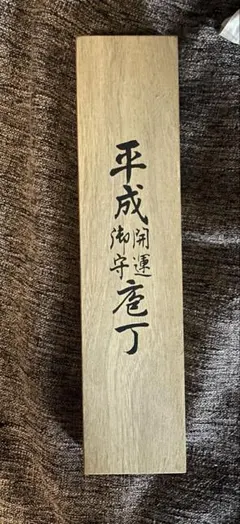 平成
開運
御守
庖丁